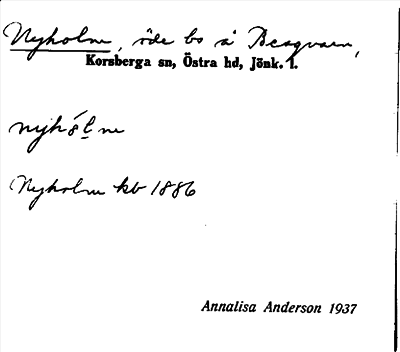 Nyholm, öde bs å Bergvarn,
Korsberga sn, Östra hd, Jönk. l.
nyhólm
Nyholm kb 1886
Annalisa Anderson 1937